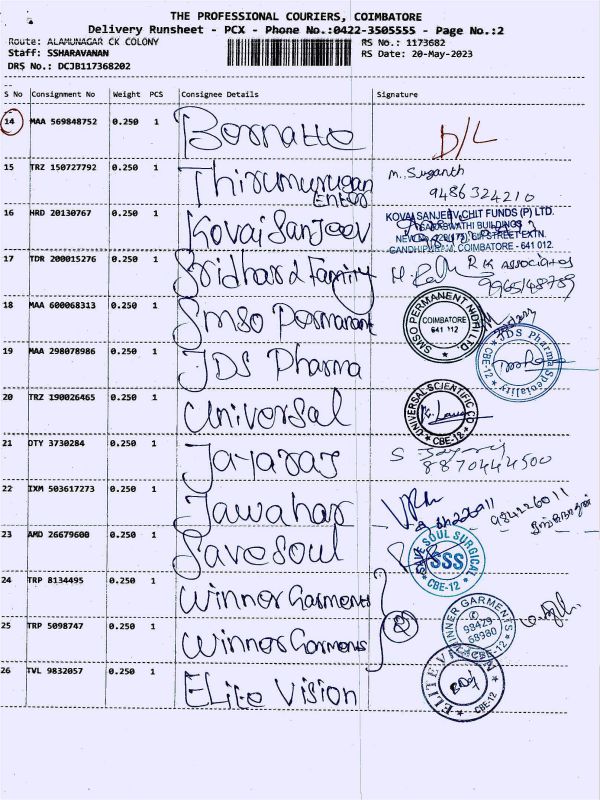 THE PROFESSIONAL COURIERS, COIMBATORE
Delivery Runsheet - PCX - Phone No.:0422-3505555 - Page No.:2
Route: ALAMUNAGAR CK COLONY RS No.: 1173682
Staff: SSHARAVANAN RS Date: 20-May-2023
DRS No.: DCJB117368202
S No Consignment No Weight PCS Consignee Details Signature
14 MAA 569848752 0.250 1 Bornatto D/L
15 TRZ 150727792 0.250 1 Thirumurugan Enter M. Suganth
9486324210
16 HRD 20130767 0.250 1 Kovai Sanjeev KOVAI SANJEEV CHIT FUNDS (P) LTD.
SARASWATHI BUILDINGS
GANDHIPURAM, COIMBATORE - 641 012.
17 TDR 200015276 0.250 1 Sridhar & Family RK ASSOCIATES
9965148789
18 MAA 600068313 0.250 1 SMSO Permanant SMSO PERMANENT NIDHI LTD.
COIMBATORE
641 112
19 MAA 298078986 0.250 1 JDS Pharma JDS Pharma Speciality CBE-12
20 TRZ 190026465 0.250 1 Universal UNIVERSAL SCIENTIFIC CO CBE-12
21 DTY 3730284 0.250 1 Jayaras S
8870444500
22 IXM 503617273 0.250 1 Jawahar
23 AMD 26679600 0.250 1 Save Soul SAVE SOUL SURGICAL SSS CBE-12
24 TRP 8134495 0.250 1 Winner Garments 2
25 TRP 5098747 0.250 1 Winner Garments WINNER GARMENTS
98429
68980
CBE-12
26 TVL 9832057 0.250 1 Elite Vision ELITE VISION CBE-12